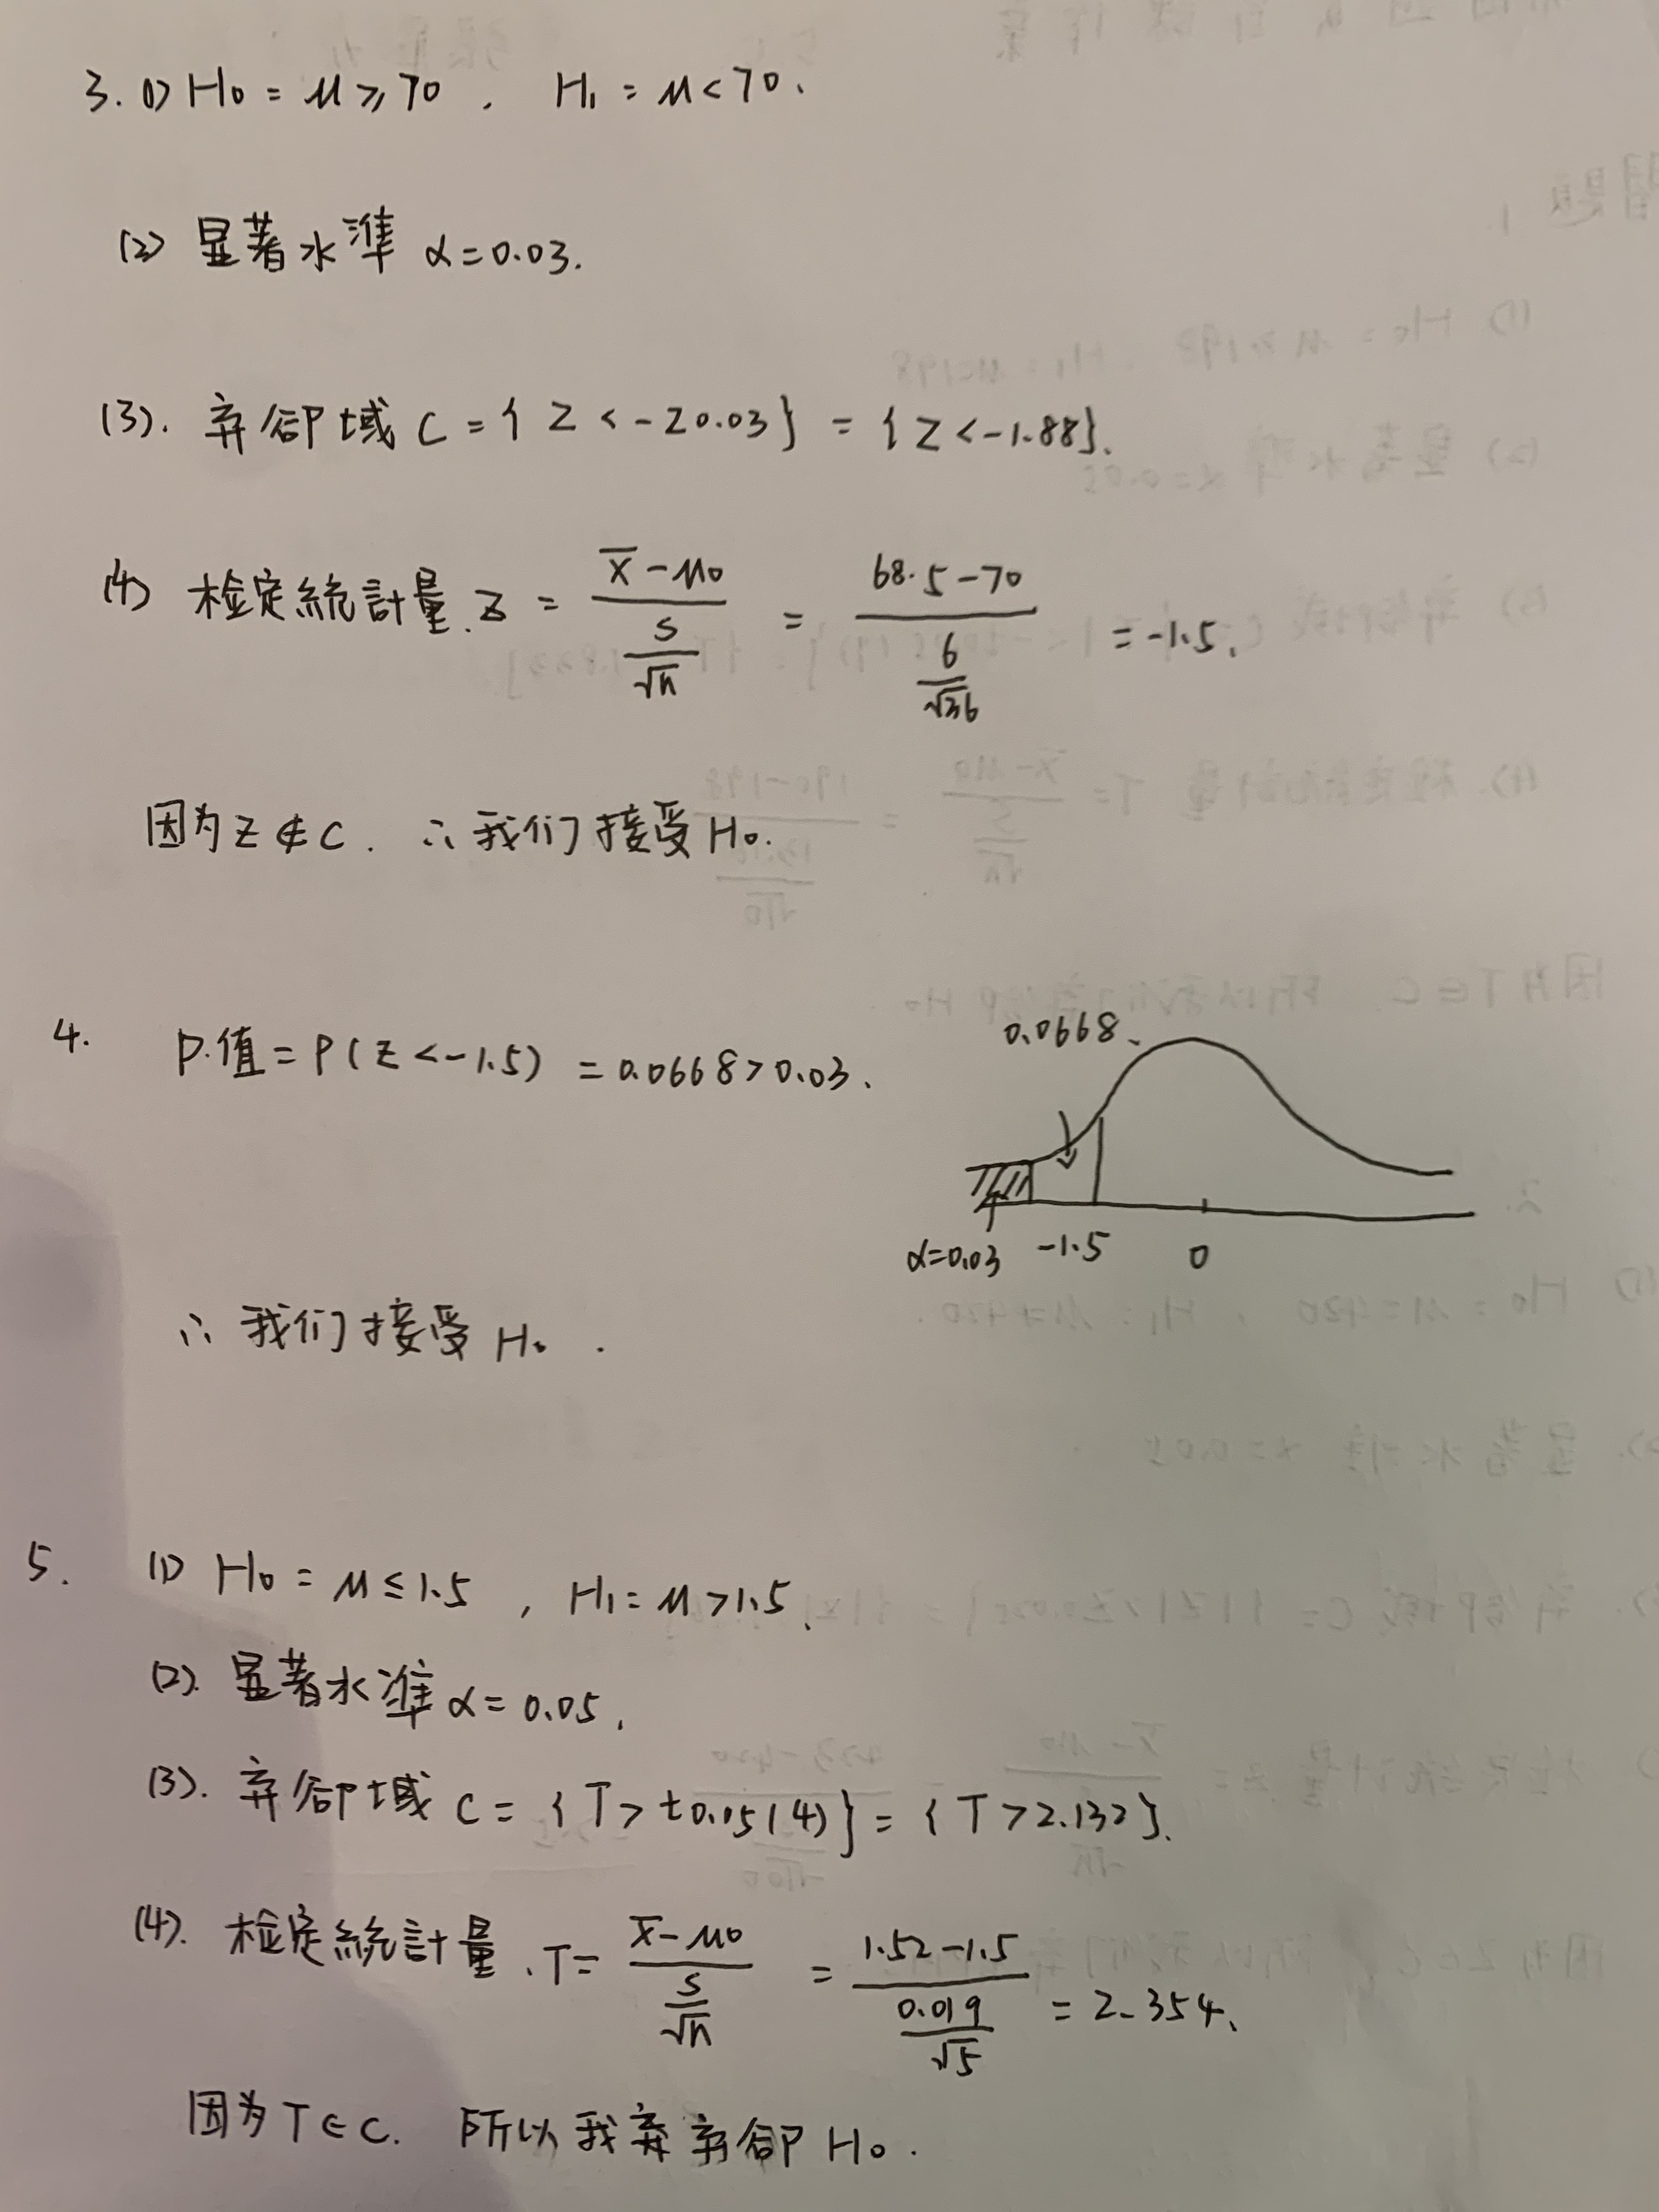 3. (1) H₀ = μ ≥ 70 , H₁ = μ < 70 .
(2) 显著水準 α = 0.03.
(3). 弃卻域 C = { Z < -Z0.03 } = { Z < -1.88 }.
(4) 检定統計量. Z = (x̄ - μ₀) / (s/√n) = (68.5 - 70) / (6/√36) = -1.5 .
因为 Z ∉ C . ∴ 我们接受 H₀.
4. P.值 = P ( Z < -1.5 ) = 0.0668 > 0.03 .
0.0668
α=0.03 -1.5 0
∴ 我们接受 H₀ .
5. (1) H₀ = μ ≤ 1.5 , H₁ = μ > 1.5 .
(2). 显著水準 α = 0.05 .
(3). 弃卻域 C = { T > t0.05 (4) } = { T > 2.132 }.
(4). 检定統計量 . T = (x̄ - μ₀) / (s/√n) = (1.52 - 1.5) / (0.019/√5) = 2.354 .
因为 T ∈ C. 所以我弃弃卻 H₀ .